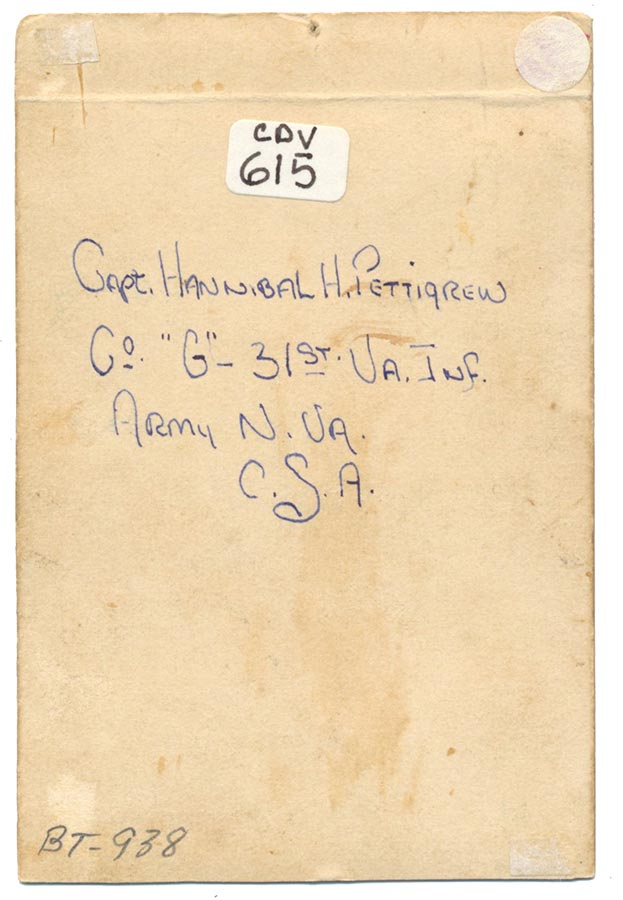 CDV
615
Capt. Hannibal H. Pettigrew
Co. "G" - 31st. Va. Inf.
Army N. Va.
C.S.A.
BT-938